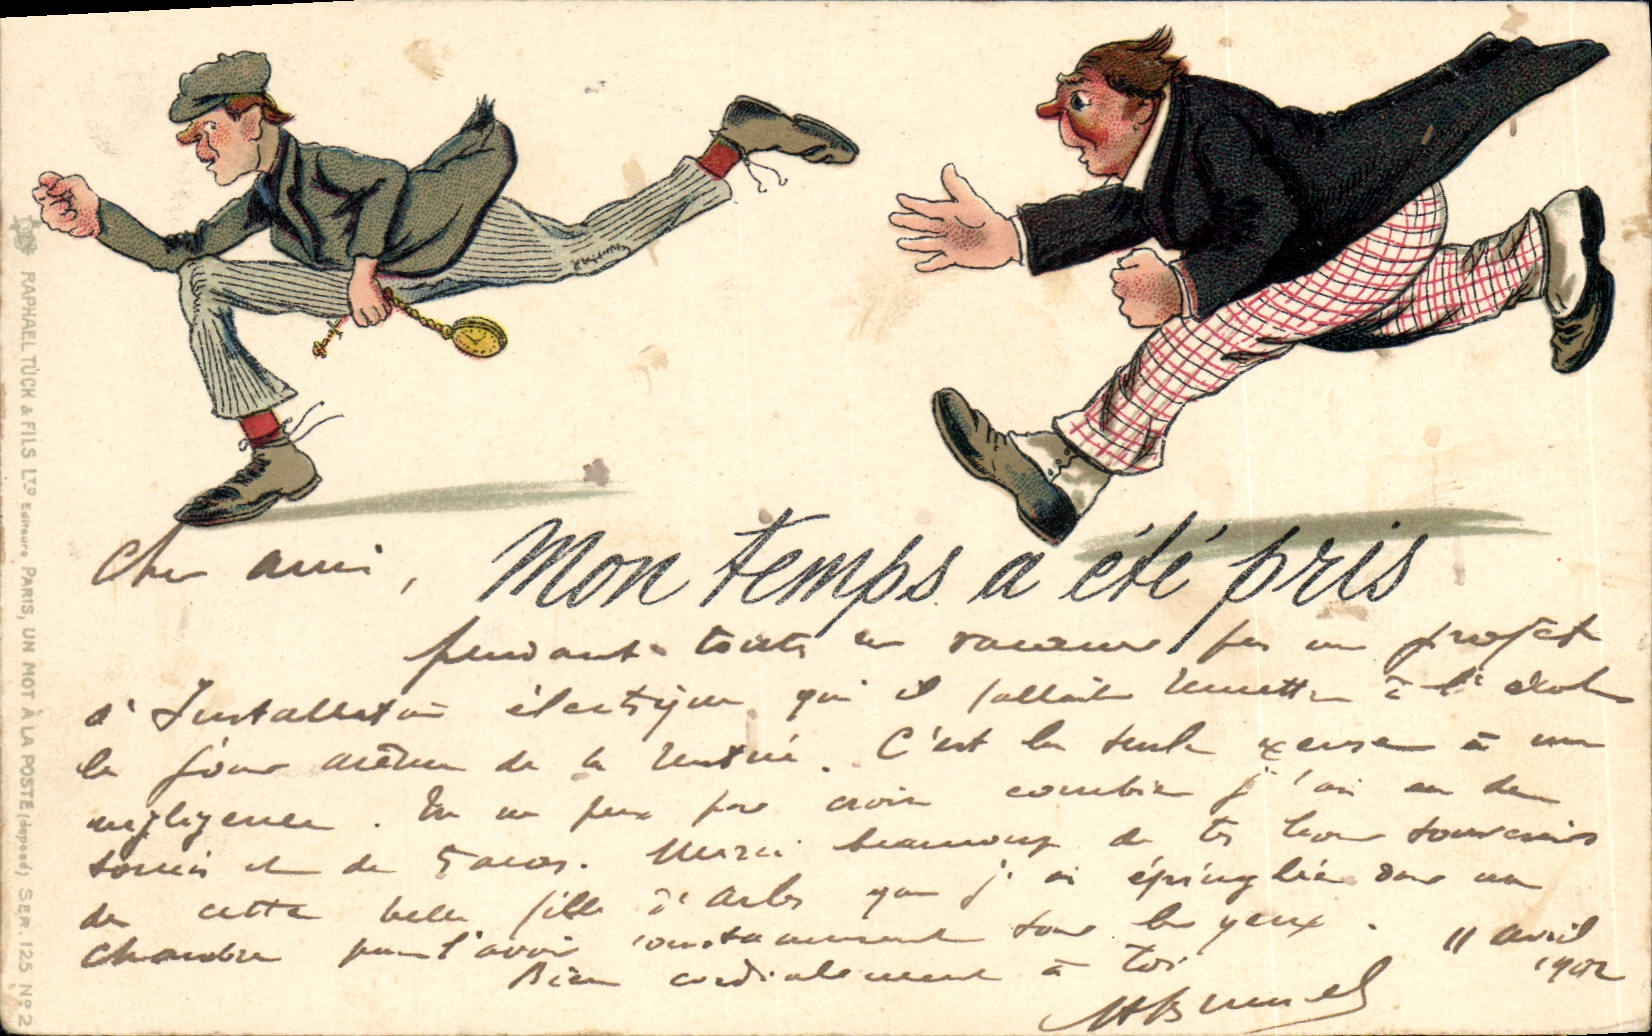 RAPHAEL TUCK & FILS LTD Editeurs PARIS, UN MOT À LA POSTE (déposé) SER. 125 No 2
Cher ami, Mon temps a été pris
pendant toutes ces vacances par un projet
d'Installation électrique qu'il fallait remettre à l'école
le jour même de la rentrée. C'est la seule excuse à ma
négligence. Tu ne peux pas croire combien j'ai eu de
soucis et de tracas. Merci beaucoup de ton bon souvenir
de cette belle fille d'Arles que j'ai épinglée dans ma
chambre pour l'avoir constamment sous les yeux.
Bien cordialement à toi
11 avril
1902